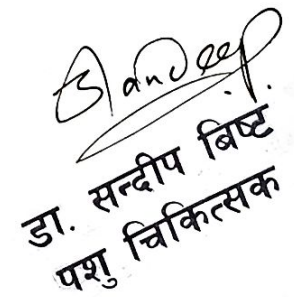 Sandeep
डा. सन्दीप बिष्ट
पशु चिकित्सक